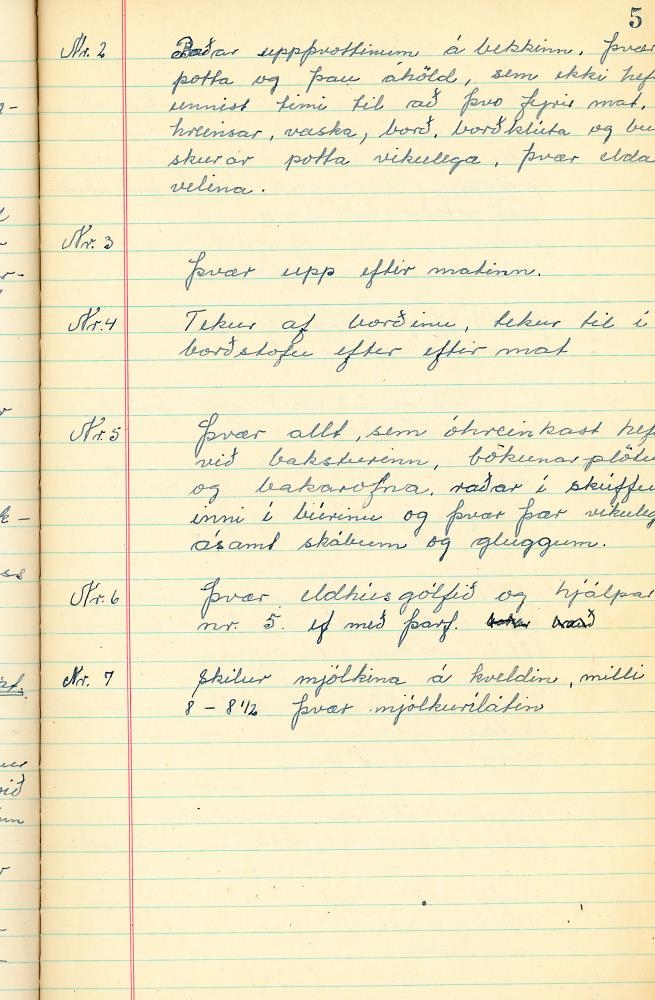 5
Nr. 2 Raðar uppþvottinum á bekkinn. Þvær
potta og þau áhöld, sem ekki hef
unnist timi til að þvo fyrir mat.
hreinsar, vaska, borð, borðklúta og bu
skurar potta vikulega, þvær elda
velina.
Nr. 3
Þvær upp eftir matinn.
Nr. 4 Tekur af borðinu, tekur til í
borðstofu efter eftir mat
Nr. 5 Þvær allt, sem óhreinkast hef
við baksturinn, bökunarplötu
og bakarofna. raðar í skúffu
inni í búrinu og þvær þær vikuleg
ásamt skábum og gluggum.
Nr. 6 Þvær eldhúsgólfið og hjálpar
nr. 5. ef með þarf.
Nr. 7 Skilur mjólkina á kveldin, milli
8 – 8 1/2 Þvær mjólkurílátin